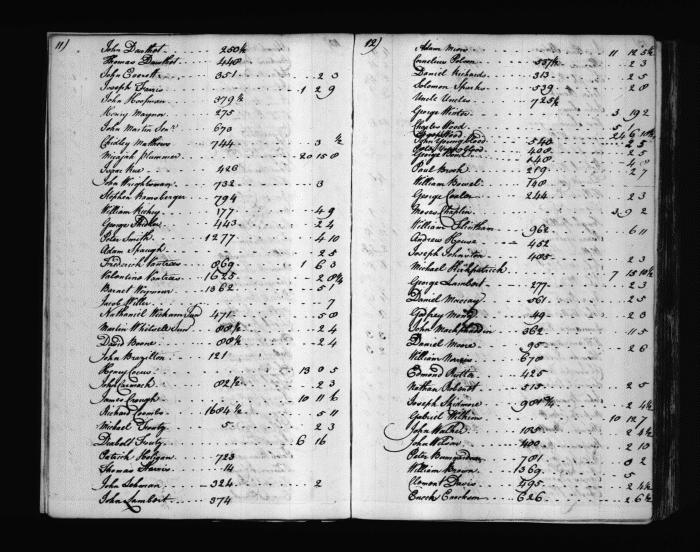 11)
John Douthet 250½
Thomas Douthet 440
John Everett 351 2 3
Joseph Ferris 1 2 9
John Hoofman 379½
Henry Magner 275
John Martin Senr 670
Chidley Matthews 744 3 ½
Micajah Plummer 20 15 0
Isaac Rue 426
John Wrightsman 732 3
Stephen Ramsberger 794
William Richey 177 4 9
George Shidler 443 2 4
Peter Smith 1277 4 10
Adam Spaugh 2 5
Frederick Vantrees 869 1 6 3
Valentine Vantrees 1625 2 8¼
Barnet Weymour 1362 5 1
Jacob Miller 7
Nathaniel Wickham 471 5 0
Martin Whitsell 80½ 2 4
David Boone 80½ 2 4
John Brazilton 121
Henry Cocus 13 0 5
John Carmack 82½ 2 3
James Crouch 10 11 6
Richard Coombs 1604½ 5 11
Michael Fouty 5 2 3
Diabolt Fouty 6 16
Patrick Holigan 723
Thomas Harris 14
John Lohman 324 2
John Lambert 374
12)
Adam Moore 11 12 5½
Cornelius Polson 537½ 2 3
Daniel Richards 313 2 5
Solomon Sparks 539 2 8
Uncle Uncles 725½
George Winter 3 19 2
Charles Wood 5
George Wood 24 6 10½
John Youngblood 540 2 5
Peter Youngblood 408 2 5
148 4
Paul Brook 219 2 7
William Bowel 148
George Coaler 244 2 3
Moses Chaplin 3 9 2
William Flintham 962 6 11
Andrew House 452
Joseph Johnston 405 2 3
Michael Kirkpatrick 7 15 10½
George Lambert 277 2 3
Daniel Mussay 561 2 5
Godfrey Mong 49 2 3
John 362 11 5
Daniel Moore 95 2 6
William Norris 670
Edmond Rutter 425
Nathan 515 2 5
Joseph Skidmore 901¾ 2 4½
Gabriel Wilkins 10 12 7
John Walker 105 2 4½
John Wilson 400 2 10
Peter Bumgardner 701 8 2
William Brown 1369 5
Clement Davis 495 2 4½
Enoch Enochson 626 2 6½